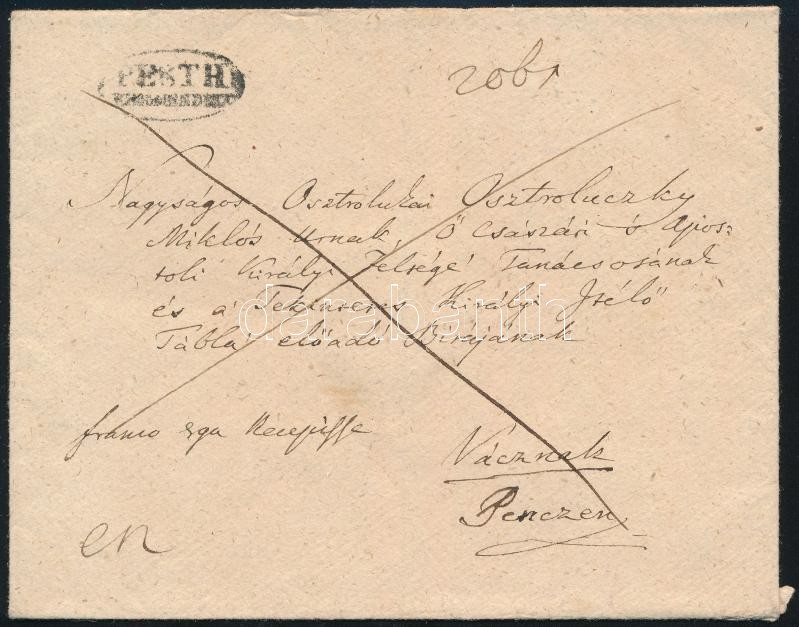 PESTH
Nagyságos Osztrolukai Osztroluczky
Miklós Urnak, Ő Császári 's Apos-
toli Királyi Felségé Tanácsosának
és a' Tekintetes Királyi Itélő
Tábla' előadó Birájának
franco erga Recepisse
Vácznak
Penczen
darabanth